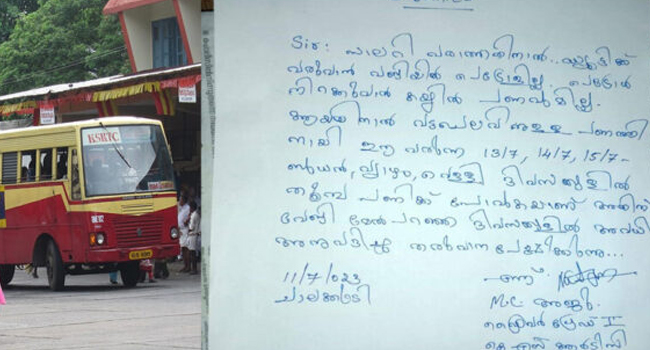 KSRTC
Sir: സാലറി വരാത്തതിനാൽ.. ഡ്യൂട്ടിക്ക്
വരുവാൻ വണ്ടിയിൽ പെട്രോളില്ല. പെട്രോൾ
നിറക്കുവാൻ കയ്യിൽ പണവുമില്ല.
ആയതിനാൽ വട്ടചെലവിനുള്ള പണത്തി
നായി ഈ വരുന്ന 13/7, 14/7, 15/7-
വ്യാഴം, വെള്ളി ദിവസങ്ങളിൽ
പണിക്ക് പോവുകയാണ് അതിന്
വേണ്ടി മേൽപറഞ്ഞ ദിവസങ്ങളിൽ അവധി
അനുവദിച്ചു തരുവാനപേക്ഷിക്കുന്നു...
11/7/023
ചാലക്കുടി
എന്ന്
M.C. അജു.
ഡ്രൈവർ ഗ്രേഡ് II
കെ എസ് ആർ ടി സി